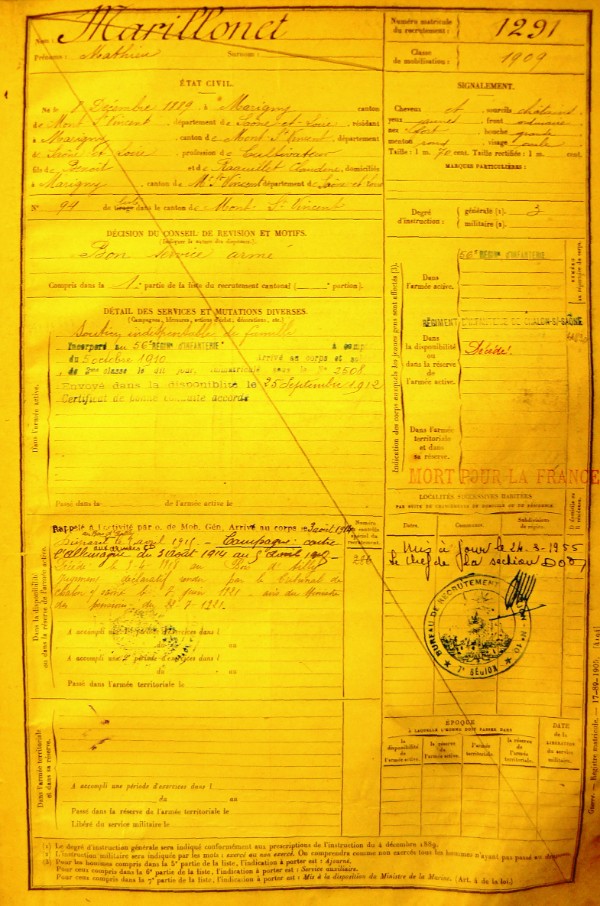 Nom : Marillonet
Prénoms : Mathieu Surnom :
Numéro matricule du recrutement : 1291
Classe de mobilisation : 1909
ÉTAT CIVIL.
Né le 8 Décembre 1889, à Marigny canton
de Mont St Vincent, département de Saône et Loire, résidant
à Marigny, canton de Mont St Vincent, département
de Saône et Loire profession de Cultivateur
fils de Benoit et de Claudine, domiciliés
à Marigny, canton de Mt St Vincent département de Saône et Loire
N° 94 de dans le canton de Mont-St-Vincent
SIGNALEMENT.
Cheveux et sourcils châtains
yeux front ordinaire
nez fort bouche grande
menton rond visage ovale
Taille : 1 m. 70 cent. Taille rectifiée : 1 m. cent.
MARQUES PARTICULIÈRES :
Degré d'instruction : générale (1). 3
militaire (2).
DÉCISION DU CONSEIL DE RÉVISION ET MOTIFS.
Bon service armé
Compris dans la 1e partie de la liste du recrutement cantonal ( portion).
DÉTAIL DES SERVICES ET MUTATIONS DIVERSES.
(Campagnes, blessures, actions d'éclat, décorations, etc.)
Soutien indispensable de famille
Incorporé au 56e RÉGIMt D'INFANTERIE à compter
du 5 octobre 1910 Arrivé au corps et soldat
de 2me classe le dit jour, immatriculé sous le N° 2508
Envoyé dans la disponibilité le 25 Septembre 1912
Certificat de bonne conduite accordé
Dans l'armée active.
Passé dans la de l'armée active le
Indication des corps auxquels les jeunes gens sont affectés (3).
Dans l'armée active.
56e RÉGIMt D'INFANTERIE
Dans la disponibilité ou dans la réserve de l'armée active.
RÉGIMENT D'INFANTERIE DE CHALON-S-SAÔNE
Décédé.
Dans l'armée territoriale et dans sa réserve.
MORT POUR LA FRANCE
LOCALITÉS SUCCESSIVES HABITÉES
PAR SUITE DE CHANGEMENT DE DOMICILE OU DE RÉSIDENCE.
Dates. Communes. Subdivisions de région.
Mis à jour le 24-3-1955
Le chef de la section
BUREAU DE RECRUTEMENT
7e RÉGION
Rappelé à l'activité par o. de Mob. Gén. Arrivé au corps le 3 août 1914
Disparu le avril 1915 - Campagne contre
l'Allemagne du 3 août 1914 au avril 1915
aux armées
Décédé
jugement déclaratif rendu par le Tribunal de
le 7 juin 1921 avis du Ministre
des pensions du 1921.
Numéro contrôle spécial du recrutement.
Dans la disponibilité ou dans la réserve de l'armée active.
A accompli une 1e période d'exercices dans l
du au
A accompli une 2e période d'exercices dans l
du au
Passé dans l'armée territoriale le
Dans l'armée territoriale et dans sa réserve.
A accompli une période d'exercices dans l
du au
Passé dans la réserve de l'armée territoriale le
Libéré du service militaire le
ÉPOQUE
À LAQUELLE L'HOMME DOIT PASSER DANS
la disponibilité de l'armée active. la réserve de l'armée active. l'armée territoriale. la réserve de l'armée territoriale.
DATE DE LA LIBÉRATION DU SERVICE MILITAIRE.
(1) Le degré d'instruction générale sera indiqué conformément aux prescriptions de l'instruction du 4 décembre 1889.
(2) L'instruction militaire sera indiquée par les mots : exercé ou non exercé. On comprendra comme non exercés tous les hommes n'ayant pas passé au
(3) Pour les hommes compris dans la 5e partie de la liste, l'indication à porter est : Ajourné.
Pour ceux compris dans la 6e partie de la liste, l'indication à porter est : Service auxiliaire.
Pour ceux compris dans la 7e partie de la liste, l'indication à porter est : Mis à la disposition du Ministre de la Marine. (Art. 4 de la loi.)
Guerre. — Registre matricule. — 17-89-1909.